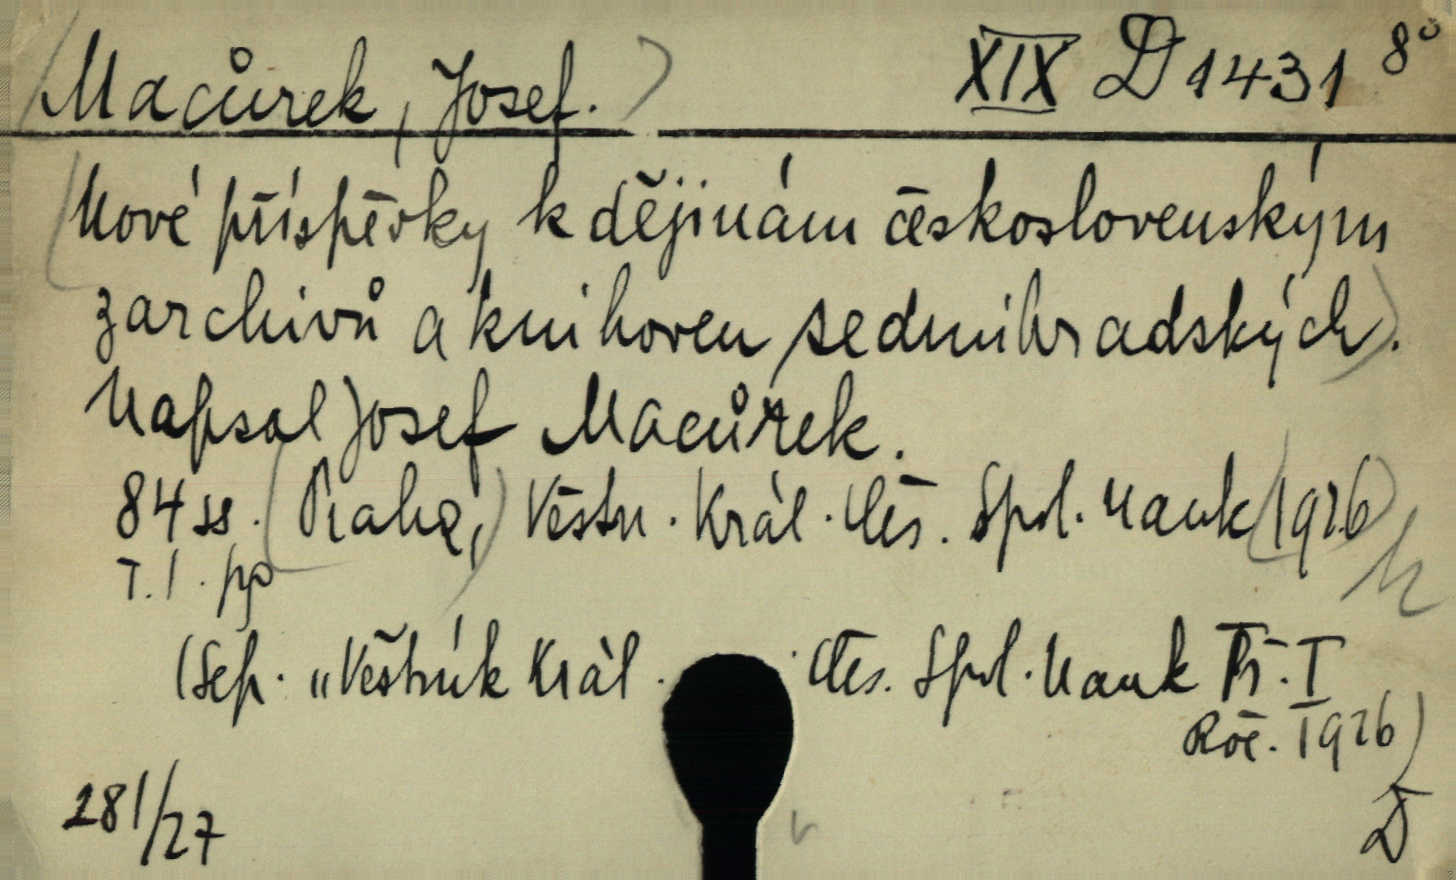 Macůrek, Josef. XIX D 1431 8°
Nové příspěvky k dějinám československým
z archivů a knihoven sedmihradských.
Napsal Josef Macůrek.
84 ss. (Praha,) Věstn. Král. Čes. Spol. Nauk (1926)
T. I. pp
(Sep. „Věstník Král. Čes. Spol. Nauk Tř. I
Roč. 1926)
281/27 D